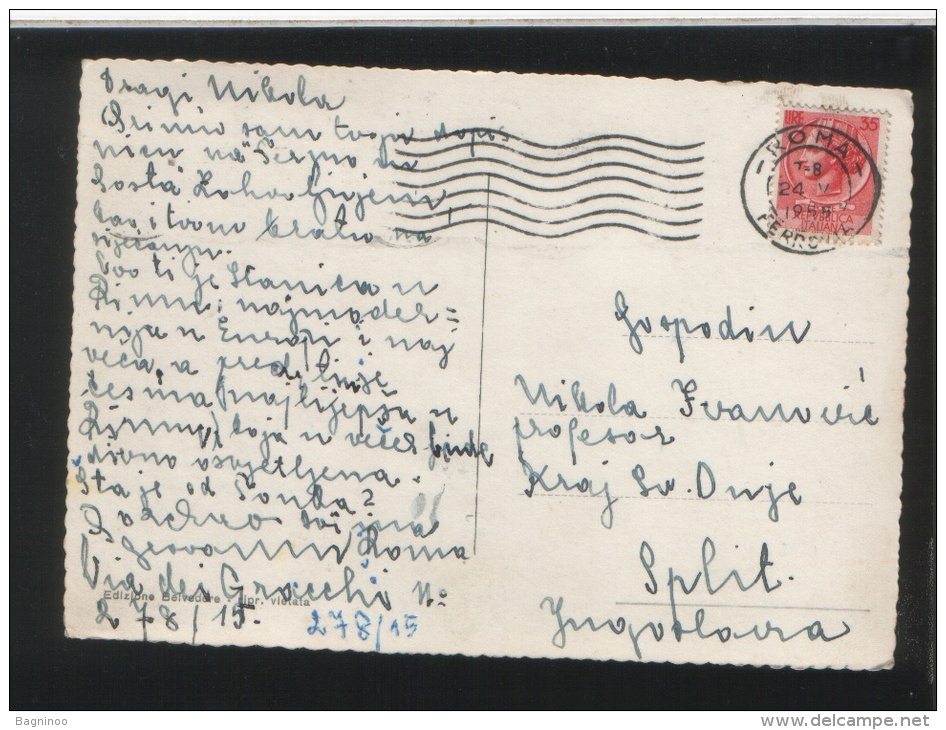 Dragi Nikola
Primio sam tvoju dopis
nicu na
Posta Zahvaljujem
kao i tvom bratu na
sjećanju.
Evo ti je Stanica u
Rimu; najmoder=
nija u Europi i naj
veća, a pred
česma najljepša u
Rimu, koja u večer bude
divno osvjetljena.
Šta je od Tonka?
Pozdrav svijma
Giovanni Roma
Via dei Gracchi No
278/15. 278/15
Edizione Belvedere - ripr. vietata
LIRE 35
REPUBBLICA
ITALIANA
ROMA
24 V
FERROVIA
Gospodin
Nikola Ivanović
profesor
Kraj Sv. Duje
Split.
Jugoslavia
Bagninoo
www.delcampe.net